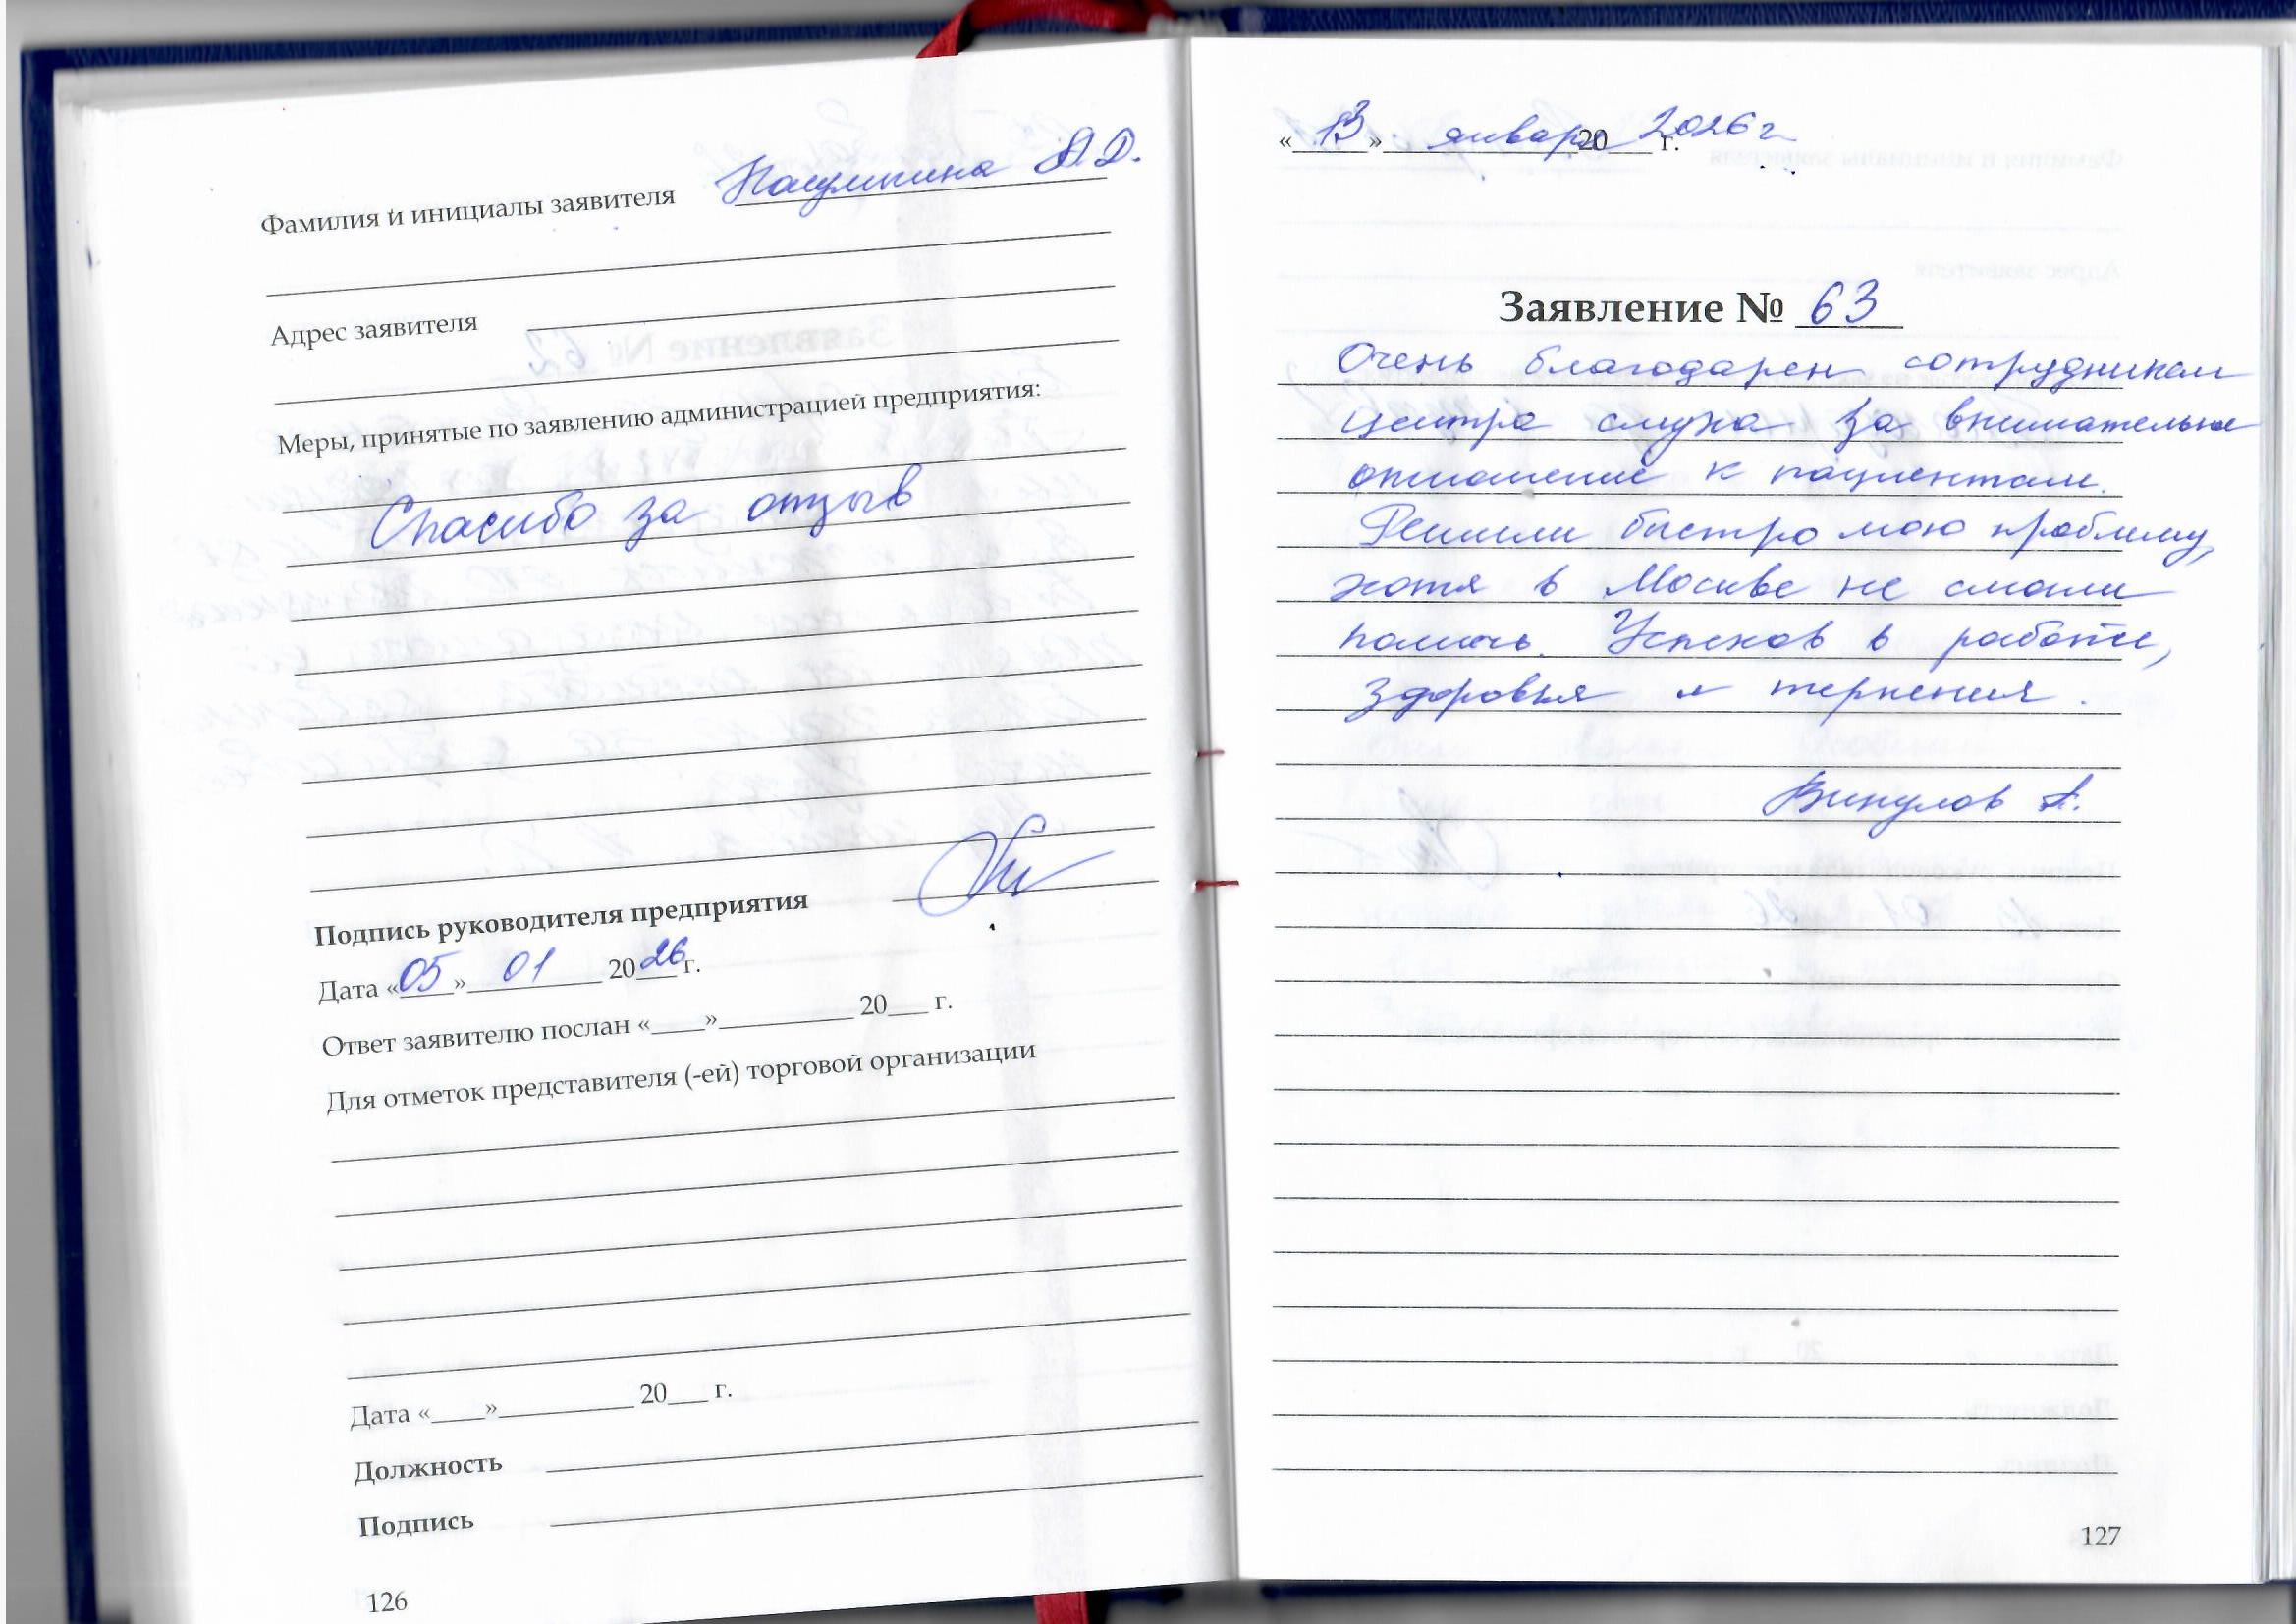 Фамилия и инициалы заявителя Пасулькина А.Д.
Адрес заявителя
Меры, принятые по заявлению администрацией предприятия:
Спасибо за отзыв
Подпись руководителя предприятия
Дата «05» 01 2026 г.
Ответ заявителю послан «____»__________ 20___ г.
Для отметок представителя (-ей) торговой организации
Дата «____»__________ 20___ г.
Должность
Подпись
126
«13» января 20 2026 г г.
Заявление № 63
Очень благодарен сотрудникам
центра слуха за внимательное
отношение к пациентам.
Решили быстро мою проблему,
хотя в Москве не смогли
помочь. Успехов в работе,
здоровья и терпения.
Викулов А.
127